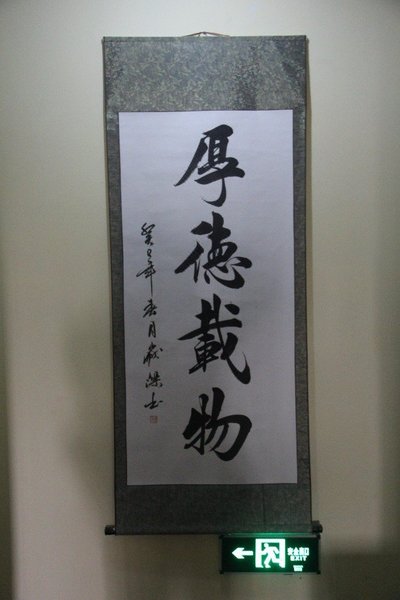 厚德載物
癸巳年春月
安全出口
EXIT